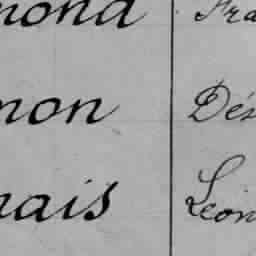 mond Fra
mon Dés
nais Léon